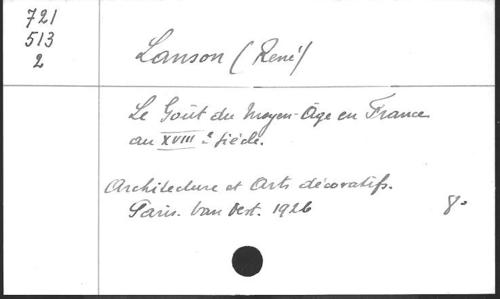 721
513
2
Lanson (René)
Le Goût du Moyen-Âge en France
au XVIIIe siècle.
Architecture et Arts décoratifs.
Paris. Van Oest. 1926 8°